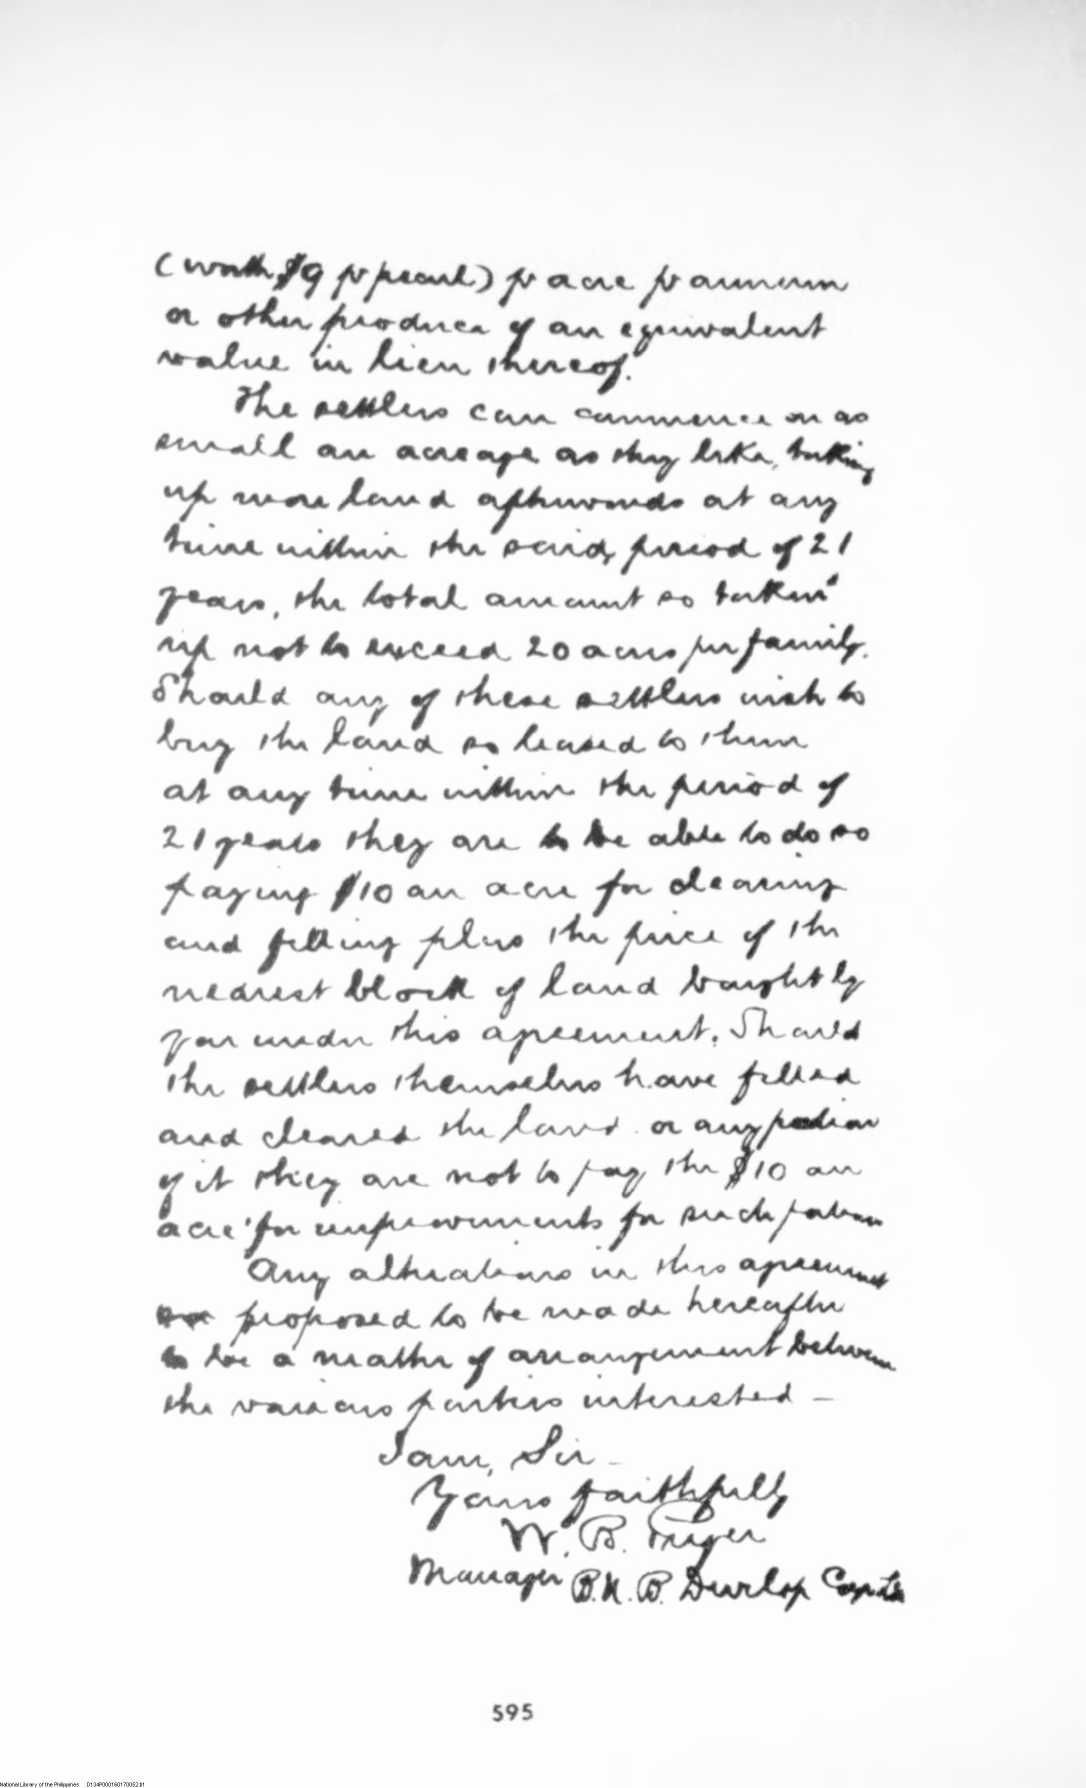 (worth $9 pr pecul) pr acre pr annum
or other produce of an equivalent
value in lieu thereof.
The settlers can commence on as
small an acreage as they like, taking
up more land afterwards at any
time within the said period of 21
years, the total amount so taken
up not to exceed 20 acres per family.
Should any of these settlers wish to
buy the land so leased to them
at any time within the period of
21 years they are to be able to do so
paying $10 an acre for clearing
and felling plus the price of the
nearest block of land bought by
you under this agreement. Should
the settlers themselves have felled
and cleared the land or any portion
of it they are not to pay the $10 an
acre for improvements for such portion
Any alterations in this agreement
proposed to be made hereafter
to be a matter of arrangement between
the various parties interested –
I am, Sir –
Yours faithfully
W. B. Pryer
Manager B.N.B. Devlop Corp Ld
595
National Library of the Philippines D134P000160170052.tif